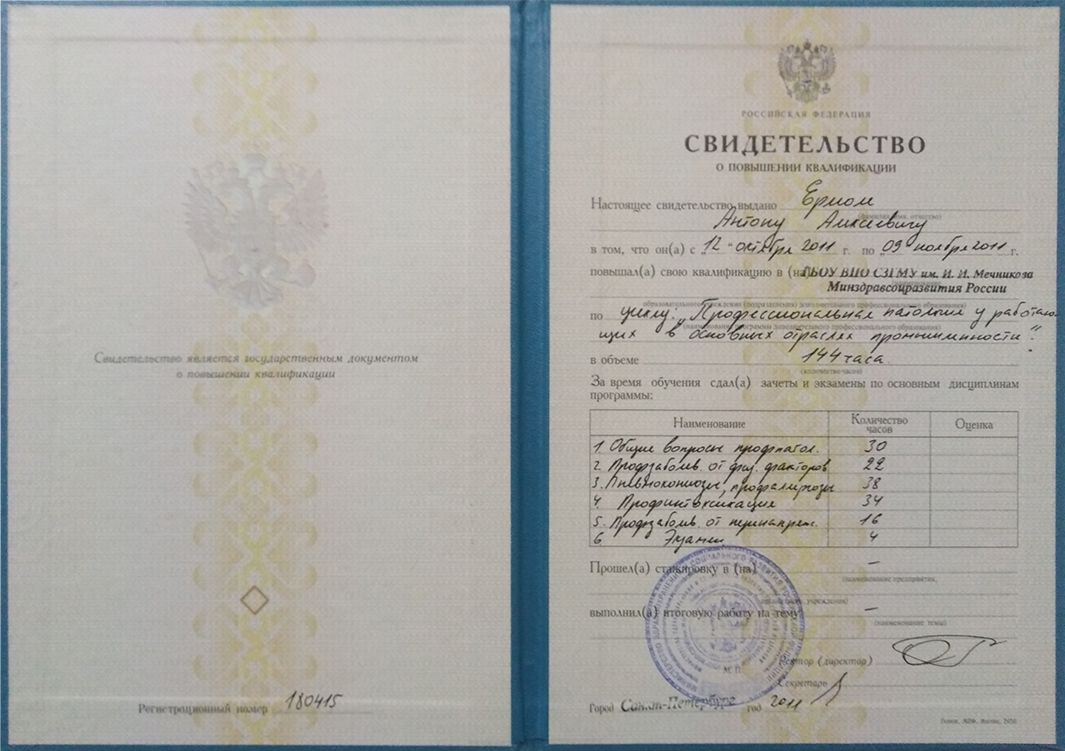 Свидетельство является государственным документом
о повышении квалификации
Регистрационный номер 180415
РОССИЙСКАЯ ФЕДЕРАЦИЯ
СВИДЕТЕЛЬСТВО
О ПОВЫШЕНИИ КВАЛИФИКАЦИИ
Настоящее свидетельство выдано
(фамилия, имя, отчество)
Антону Алексеевичу
в том, что он(а) с „12“ октября 2011 г. по „09“ ноября 2011 г.
повышал(а) свою квалификацию в (на) ГБОУ ВПО СЗГМУ им. И. И. Мечникова
Минздравсоцразвития России
образовательного учреждения (подразделения) дополнительного профессионального образования)
по циклу: „Профессиональная патология у работаю-
(наименование программы дополнительного профессионального образования)
щих в основных отраслях промышленности".
в объеме 144 часа
(количество часов)
За время обучения сдал(а) зачеты и экзамены по основным дисциплинам
программы:
Наименование Количество часов Оценка
1. Общие вопросы профпатол. 30
2. Профзаболев. от физ. факторов 22
3. Пневмокониозы, профаллергозы 38
4. Профинтоксикации 34
5. Профзаболев. от перенапряж. 16
6. Экзамен 4
Прошел(а) стажировку в (на) —
(наименование предприятия,
организации, учреждения)
выполнил(а) итоговую работу на тему —
(наименование темы)
М.П.
Ректор (директор)
Секретарь
Город Санкт-Петербург год 2011